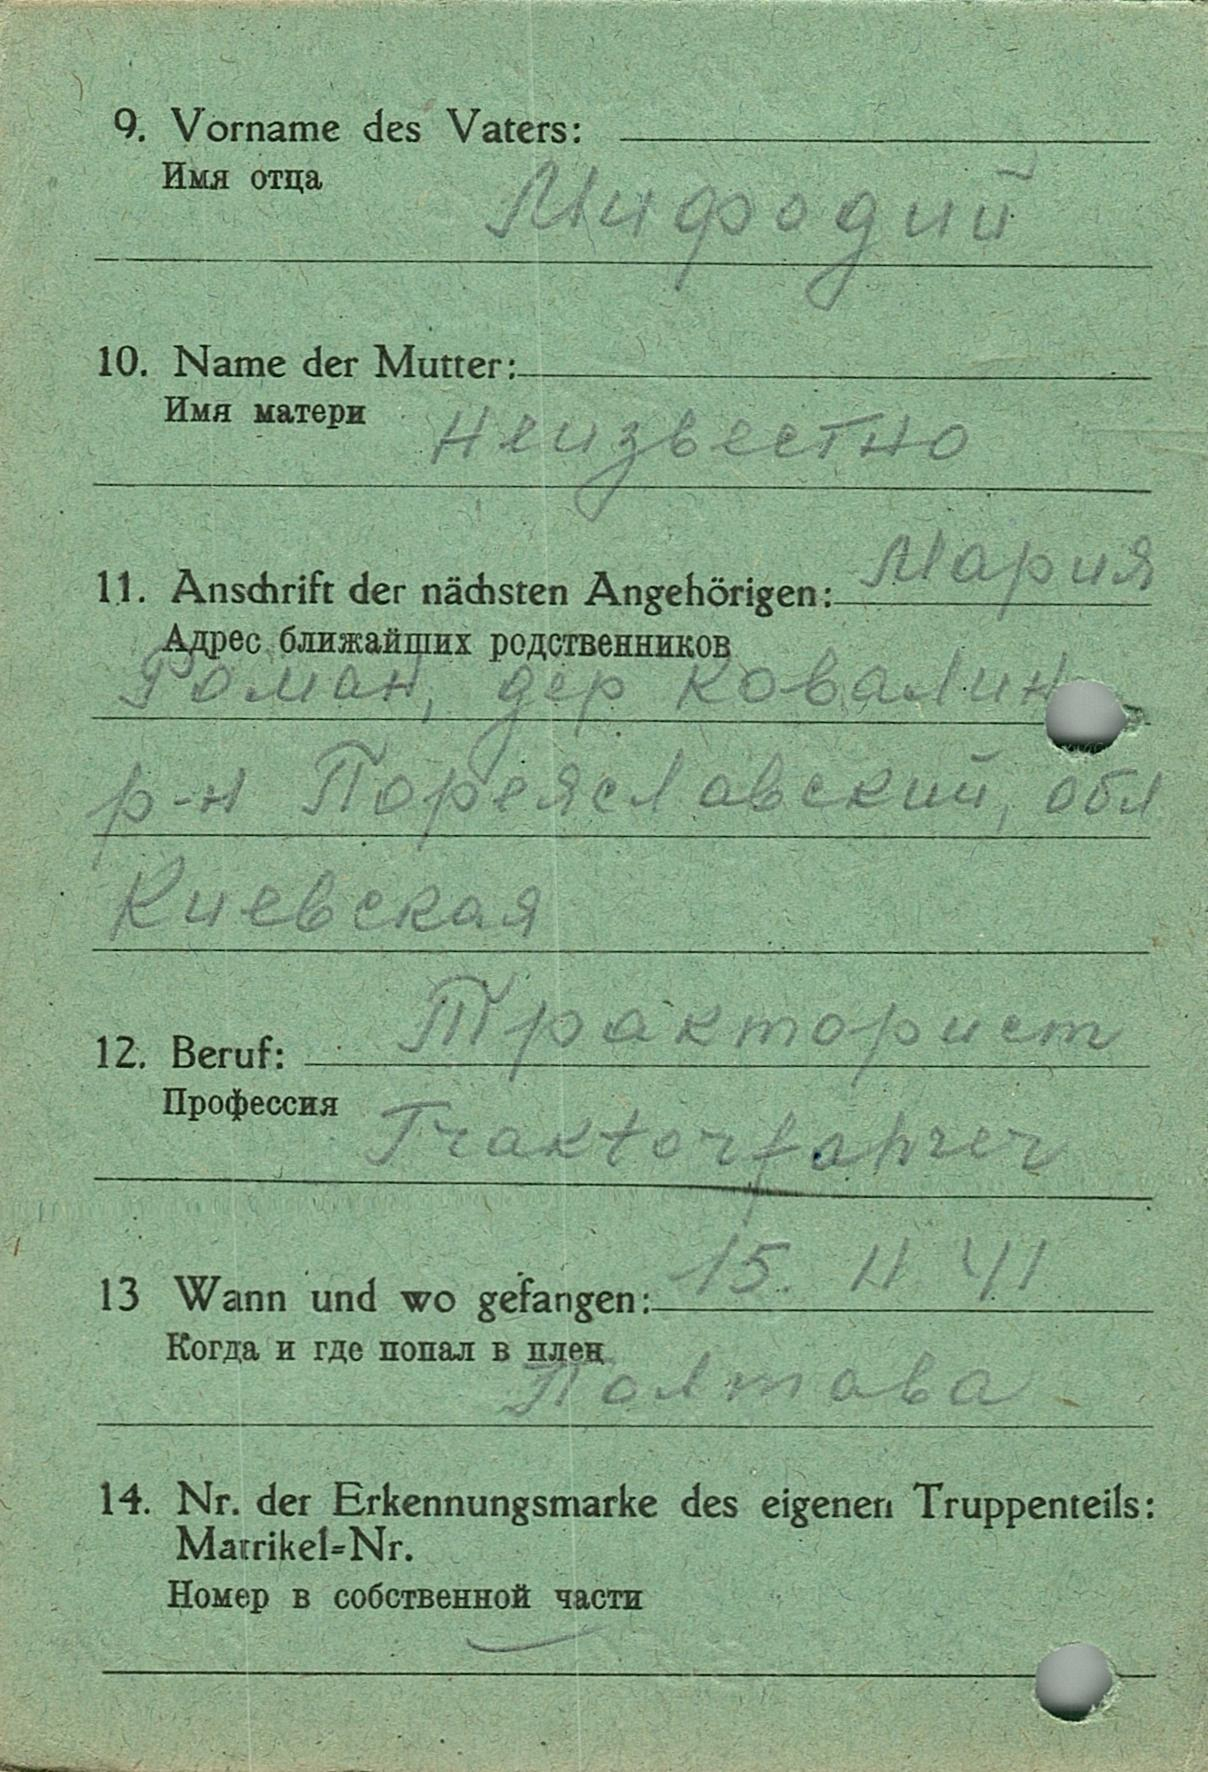 9. Vorname des Vaters:
Имя отца
Мифодий
10. Name der Mutter:
Имя матери
неизвестно
Мария
11. Anschrift der nächsten Angehörigen:
Адрес ближайших родственников
Роман, дер Ковалин
р-н Пореяславский, обл
Киевская
Тракторист
12. Beruf:
Профессия
Traktorfahrer
13 Wann und wo gefangen: 15. II 41
Когда и где попал в плен
Полтава
14. Nr. der Erkennungsmarke des eigenen Truppenteils:
Matrikel=Nr.
Номер в собственной части